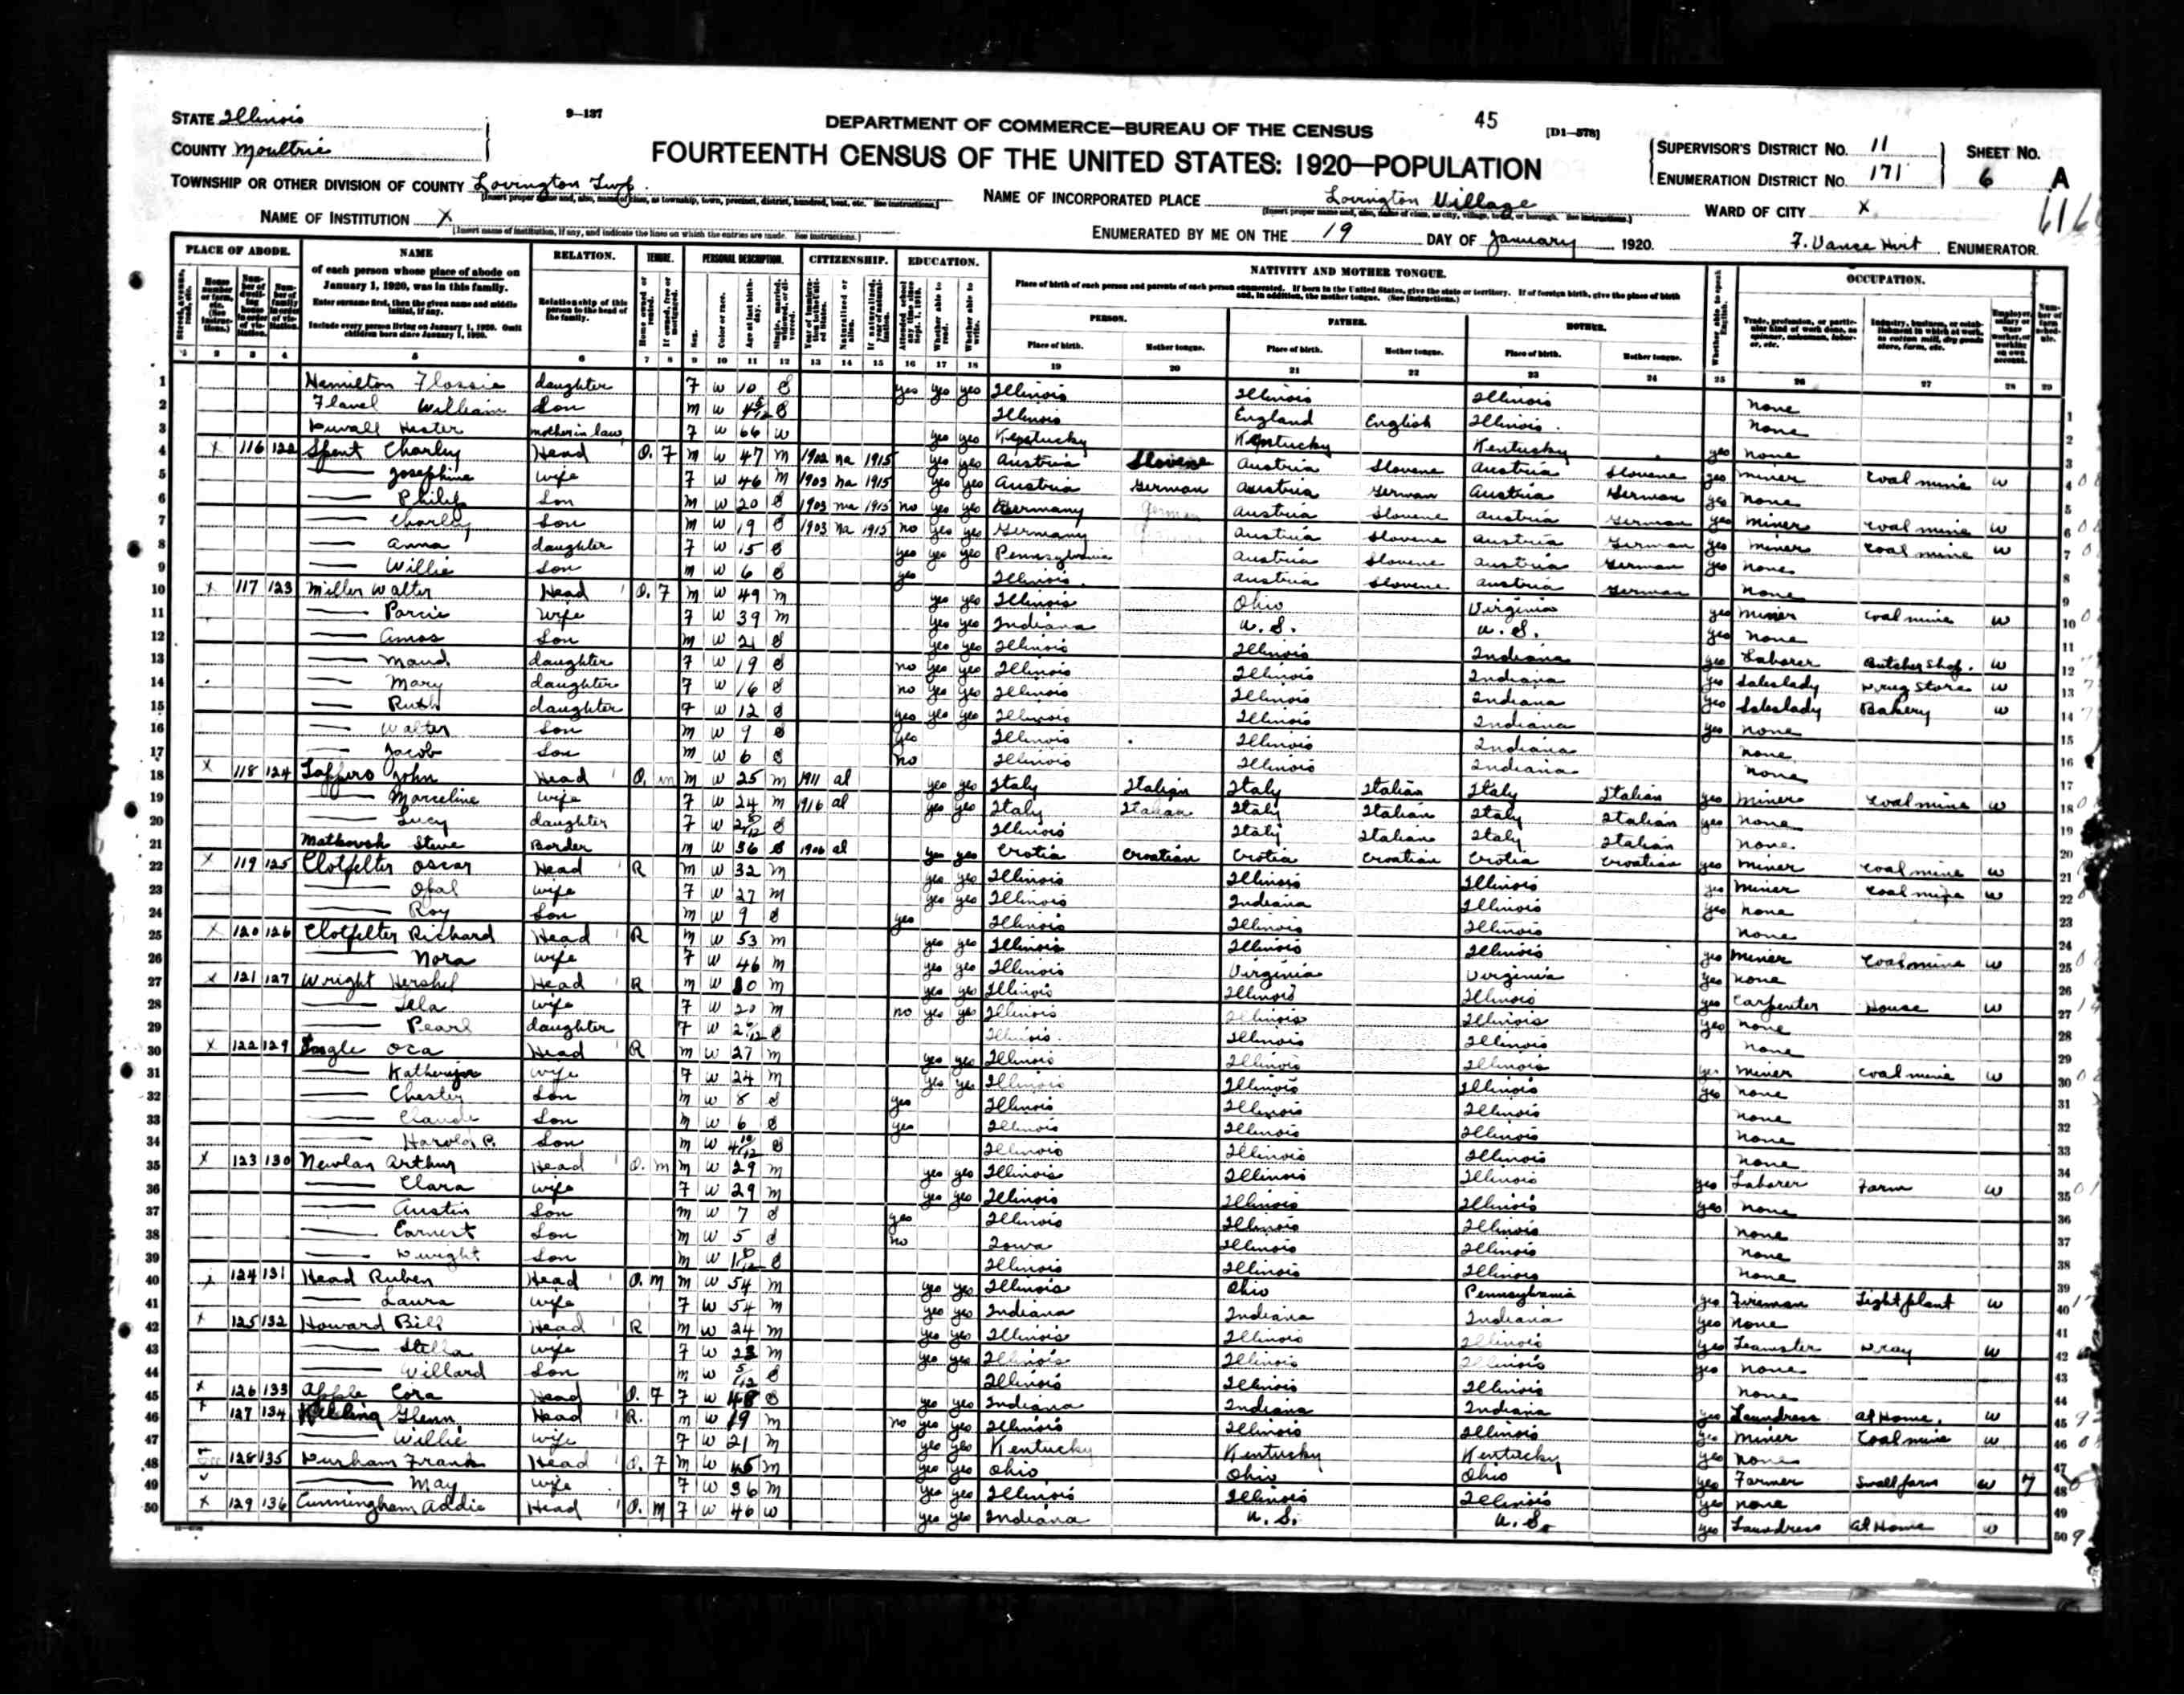 STATE Illinois
9-137
DEPARTMENT OF COMMERCE—BUREAU OF THE CENSUS
45
[D1-578]
COUNTY Moultrie
FOURTEENTH CENSUS OF THE UNITED STATES: 1920—POPULATION
SUPERVISOR'S DISTRICT NO. 11
SHEET NO.
ENUMERATION DISTRICT NO. 171
6 A
TOWNSHIP OR OTHER DIVISION OF COUNTY Lovington Twp.
NAME OF INCORPORATED PLACE Lovington Village
WARD OF CITY X
NAME OF INSTITUTION X
[Insert name of institution, if any, and indicate the lines on which the entries are made. See instructions.]
ENUMERATED BY ME ON THE 19 DAY OF January 1920.
F. Vance ENUMERATOR.
PLACE OF ABODE. NAME RELATION. TENURE. PERSONAL DESCRIPTION. CITIZENSHIP. EDUCATION. NATIVITY AND MOTHER TONGUE. OCCUPATION.
of each person whose place of abode on January 1, 1920, was in this family.
Enter surname first, then the given name and middle initial, if any.
Include every person living on January 1, 1920. Omit children born since January 1, 1920.
Relationship of this person to the head of the family.
Place of birth of each person and parents of each person enumerated. If born in the United States, give the state or territory. If of foreign birth, give the place of birth and, in addition, the mother tongue. (See instructions.)
PERSON. FATHER. MOTHER.
Place of birth. Mother tongue. Place of birth. Mother tongue. Place of birth. Mother tongue.
1 Hamilton Flossie daughter F W 10 S yes yes yes Illinois Illinois Illinois none
2 Flavel William Son M W S Illinois England English Illinois none
3 Duvall Hester mother in law F W 66 W yes yes Kentucky Kentucky Kentucky yes none
4 X 116 122 Spent Charley Head O. F M W 47 M 1902 na 1915 yes yes Austria Slovene Austria Slovene Austria Slovene yes miner Coal mine W
5 Josephine wife F W 46 M 1903 na 1915 yes yes Austria German Austria German Austria German yes none
6 Philip Son M W 20 S 1903 na 1915 no yes yes Germany German Austria Slovene Austria German yes miner Coal mine W
7 Charley Son M W 19 S 1903 na 1915 no yes yes Germany Austria Slovene Austria German yes miner Coal mine W
8 Anna daughter F W 15 S yes yes yes Pennsylvania Austria Slovene Austria German yes none
9 Willie Son M W 6 S yes Illinois Austria Slovene Austria German none
10 X 117 123 Miller Walter Head O. F M W 49 M yes yes Illinois Ohio Virginia yes miner Coal mine W
11 wife F W 39 M yes yes Indiana U. S. U. S. yes none
12 Amos Son M W 21 S yes yes Illinois Illinois Indiana yes Laborer Butcher Shop. W
13 Maud daughter F W 19 S no yes yes Illinois Illinois Indiana yes Saleslady Drug Store W
14 Mary daughter F W 16 S no yes yes Illinois Illinois Indiana yes Saleslady Bakery W
15 Ruth daughter F W 12 S yes yes yes Illinois Illinois Indiana yes none
16 Walter Son M W 9 S yes Illinois Illinois Indiana none
17 Jacob Son M W 6 S no Illinois Illinois Indiana none
18 X 118 124 John Head O. M W 25 M 1911 al yes yes Italy Italian Italy Italian Italy Italian yes miner Coal mine W
19 Marceline wife F W 24 M 1916 al yes yes Italy Italian Italy Italian Italy Italian yes none
20 Lucy daughter F W S Illinois Italy Italian Italy Italian none
21 Steve Border M W 36 S 1906 al yes yes Crotia Croatian Crotia Croatian Crotia Croatian yes miner Coal mine W
22 X 119 125 Clotfelter Oscar Head R M W 32 M yes yes Illinois Illinois Illinois yes miner Coal mine W
23 Opal wife F W 27 M yes yes Illinois Indiana Illinois yes none
24 Roy Son M W 9 S yes Illinois Illinois Illinois none
25 X 120 126 Clotfelter Richard Head R M W 53 M yes yes Illinois Illinois Illinois yes miner Coal mine W
26 Nora wife F W 46 M yes yes Illinois Virginia Virginia yes none
27 X 121 127 Wright Hershel Head R M W M yes yes Illinois Illinois Illinois yes Carpenter House W
28 Lela wife F W 20 M no yes yes Illinois Illinois Illinois yes none
29 Pearl daughter F W S Illinois Illinois Illinois none
30 X 122 129 Oca Head R M W 27 M yes yes Illinois Illinois Illinois yes miner Coal mine W
31 wife F W 24 M yes yes Illinois Illinois Illinois yes none
32 Chester Son M W 8 S yes Illinois Illinois Illinois none
33 Claude Son M W 6 S yes Illinois Illinois Illinois none
34 Harold Son M W S Illinois Illinois Illinois none
35 X 123 130 Newlan Arthur Head O. M M W 29 M yes yes Illinois Illinois Illinois yes Laborer Farm W
36 Clara wife F W 29 M yes yes Illinois Illinois Illinois yes none
37 Austin Son M W 7 S yes Illinois Illinois Illinois none
38 Earnest Son M W 5 S no Iowa Illinois Illinois none
39 Dwight Son M W S Illinois Illinois Illinois none
40 X 124 131 Head Ruben Head O. M M W 54 M yes yes Illinois Ohio Pennsylvania yes Fireman Light plant W
41 Laura wife F W 54 M yes yes Indiana Indiana Indiana yes none
42 X 125 132 Howard Bill Head R M W 24 M yes yes Illinois Illinois Illinois yes Teamster Dray W
43 Stella wife F W 23 M yes yes Illinois Illinois Illinois yes none
44 Willard Son M W 5/12 S Illinois Illinois Illinois none
45 X 126 133 Apple Cora Head O. F F W 48 S yes yes Indiana Indiana Indiana yes Laundress at Home. W
46 127 134 Glenn Head R. M W 19 M no yes yes Illinois Illinois Illinois yes miner Coal mine W
47 Willie wife F W 21 M yes yes Kentucky Kentucky Kentucky yes none
48 128 135 Durham Frank Head O. F M W 45 M yes yes Ohio Ohio Ohio yes Farmer Small farm W 7
49 May wife F W 36 M yes yes Illinois Illinois Illinois yes none
50 X 129 136 Cunningham Addie Head O. M F W 46 W yes yes Indiana U. S. U. S. yes Laundress at Home W